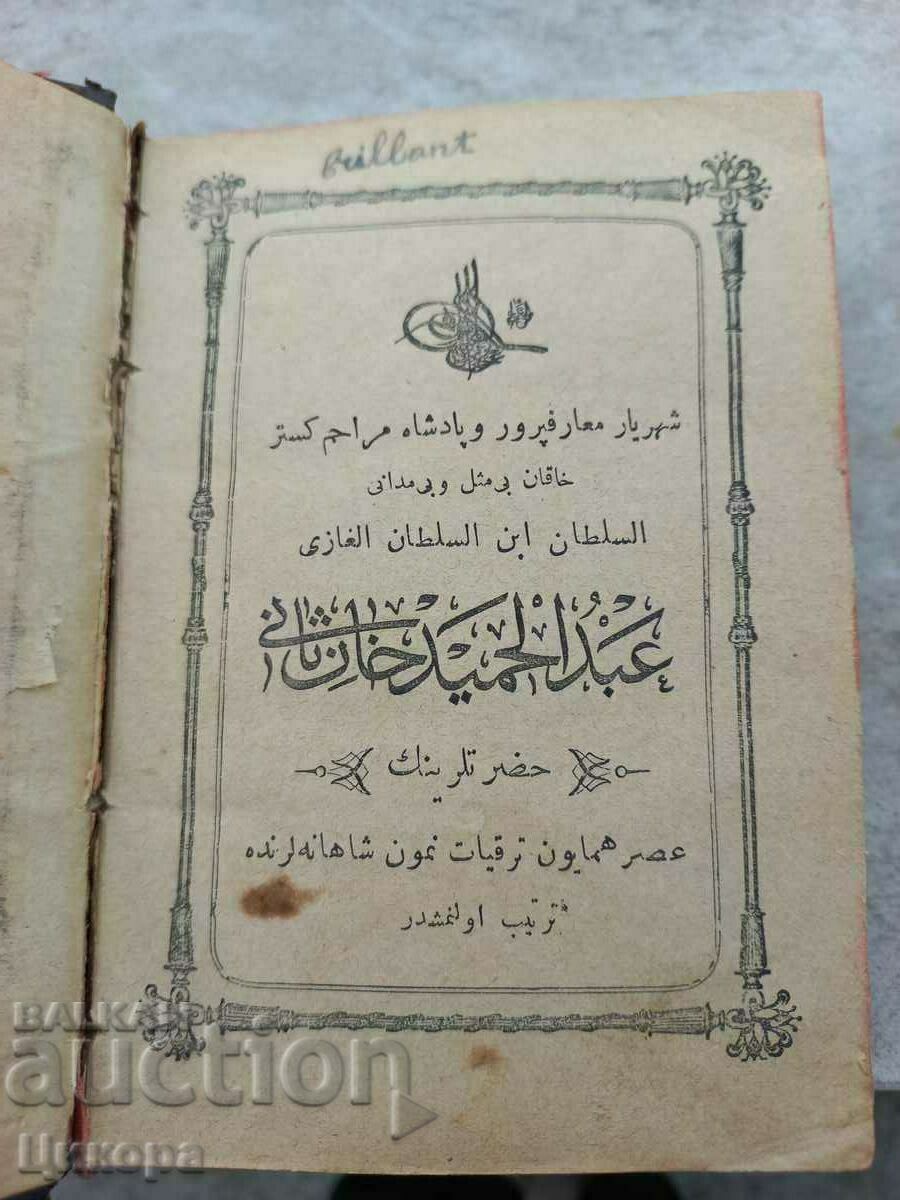 Brillant
شهريار معارفپرور و پادشاه مراحم کستر
خاقان بی مثل و بی مدانی
السلطان ابن السلطان الغازی
عَبْدُ الْحَمِيدْ خَانِ ثَانی
حضرتلرينك
عصر همايون ترقيات نمون شاهانه لرنده
ترتيب اولنمشدر
BALKAN
auction
Цикора